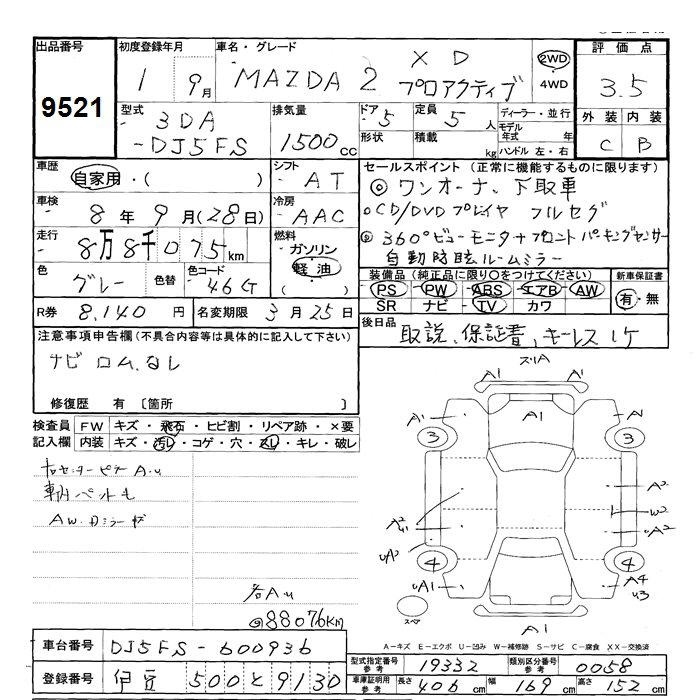 出品番号
9521
初度登録年月
1 9月
車名・グレード
MAZDA 2 XD
プロアクティブ
2WD
・4WD
評価点
3.5
外装 内装
C B
型式
3DA
-DJ5FS
排気量
1500cc
ドア
5
定員
5人
形状
積載
kg
ディーラー・並行
モデル
年式 年
ハンドル 左・右
車歴
自家用・( )
シフト
AT
セールスポイント (正常に機能するものに限ります)
◎ワンオーナ、下取車
○CD/DVDプレイヤ フルセグ
◎360°ビューモニタ+フロントパーキングセンサー
自動防眩ルームミラー
車検
8年9月(28日)
冷房
AAC
走行
8万8千075km
燃料
ガソリン
軽油
色
グレー
色替
色コード
46G
装備品(純正品に限り○をつけてください)
PS・PW・ABS・エアB・AW
SR ナビ・TV カワ
新車保証書
有・無
R券
8,140円
名変期限
3月25日
後日品
取説、保証書、キーレス1ケ
注意事項申告欄(不具合内容等は具体的に記入して下さい)
ナビロムなし
修復歴 有 [箇所 ]
検査員
記入欄
FW キズ・飛石・ヒビ割・リペア跡・×要
内装 キズ・汚レ・コゲ・穴・スレ・キレ・破レ
右センターピラA.u
車内ペット毛
AW.ドミラーキズ
右A.u
◎88076km
スリA
A1 A1
A1
A1 A1
3 3
A2
W2
uA2
A2
uA2
4 4
uA1
A4
u3
スペア
A1
A-キズ E-エクボ U-凹み W-補修跡 S-サビ C-腐食 XX-交換済
車台番号
DJ5FS-600936
登録番号
伊豆 500 と 9130
型式指定番号
参考
19332
類別区分番号
参考
0058
車庫証明用
参考
長さ
406cm
幅
169cm
高さ
152cm